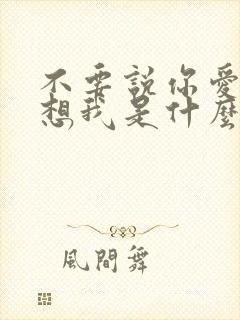 不要說你愛
想我是什麼
風間舞